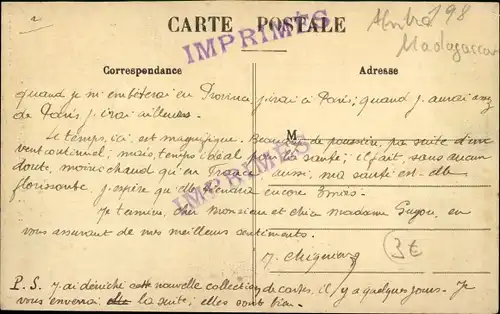 2
CARTE POSTALE
Afrika 198
Madagascar
IMPRIMÉS
Correspondance
Adresse
quand je m'embêterai en Province, j'irai à Paris; quand j'aurai assez
de Paris j'irai ailleurs.
M
Le temps, ici, est magnifique. Beaucoup de poussière, par suite d'un
vent continuel; mais, temps idéal pour la santé; il fait, sans aucun
doute, moins chaud qu'en France. Aussi, ma santé est-elle
IMPRIMÉS
florissante. J'espère qu'elle tiendra encore 3 mois.
Je termine, cher Monsieur et chère Madame Guyou, en
vous assurant de mes meilleurs sentiments.
3€
P.S. J'ai déniché cette nouvelle collection de cartes, il y a quelques jours. Je
vous enverrai la suite; elles sont bien.